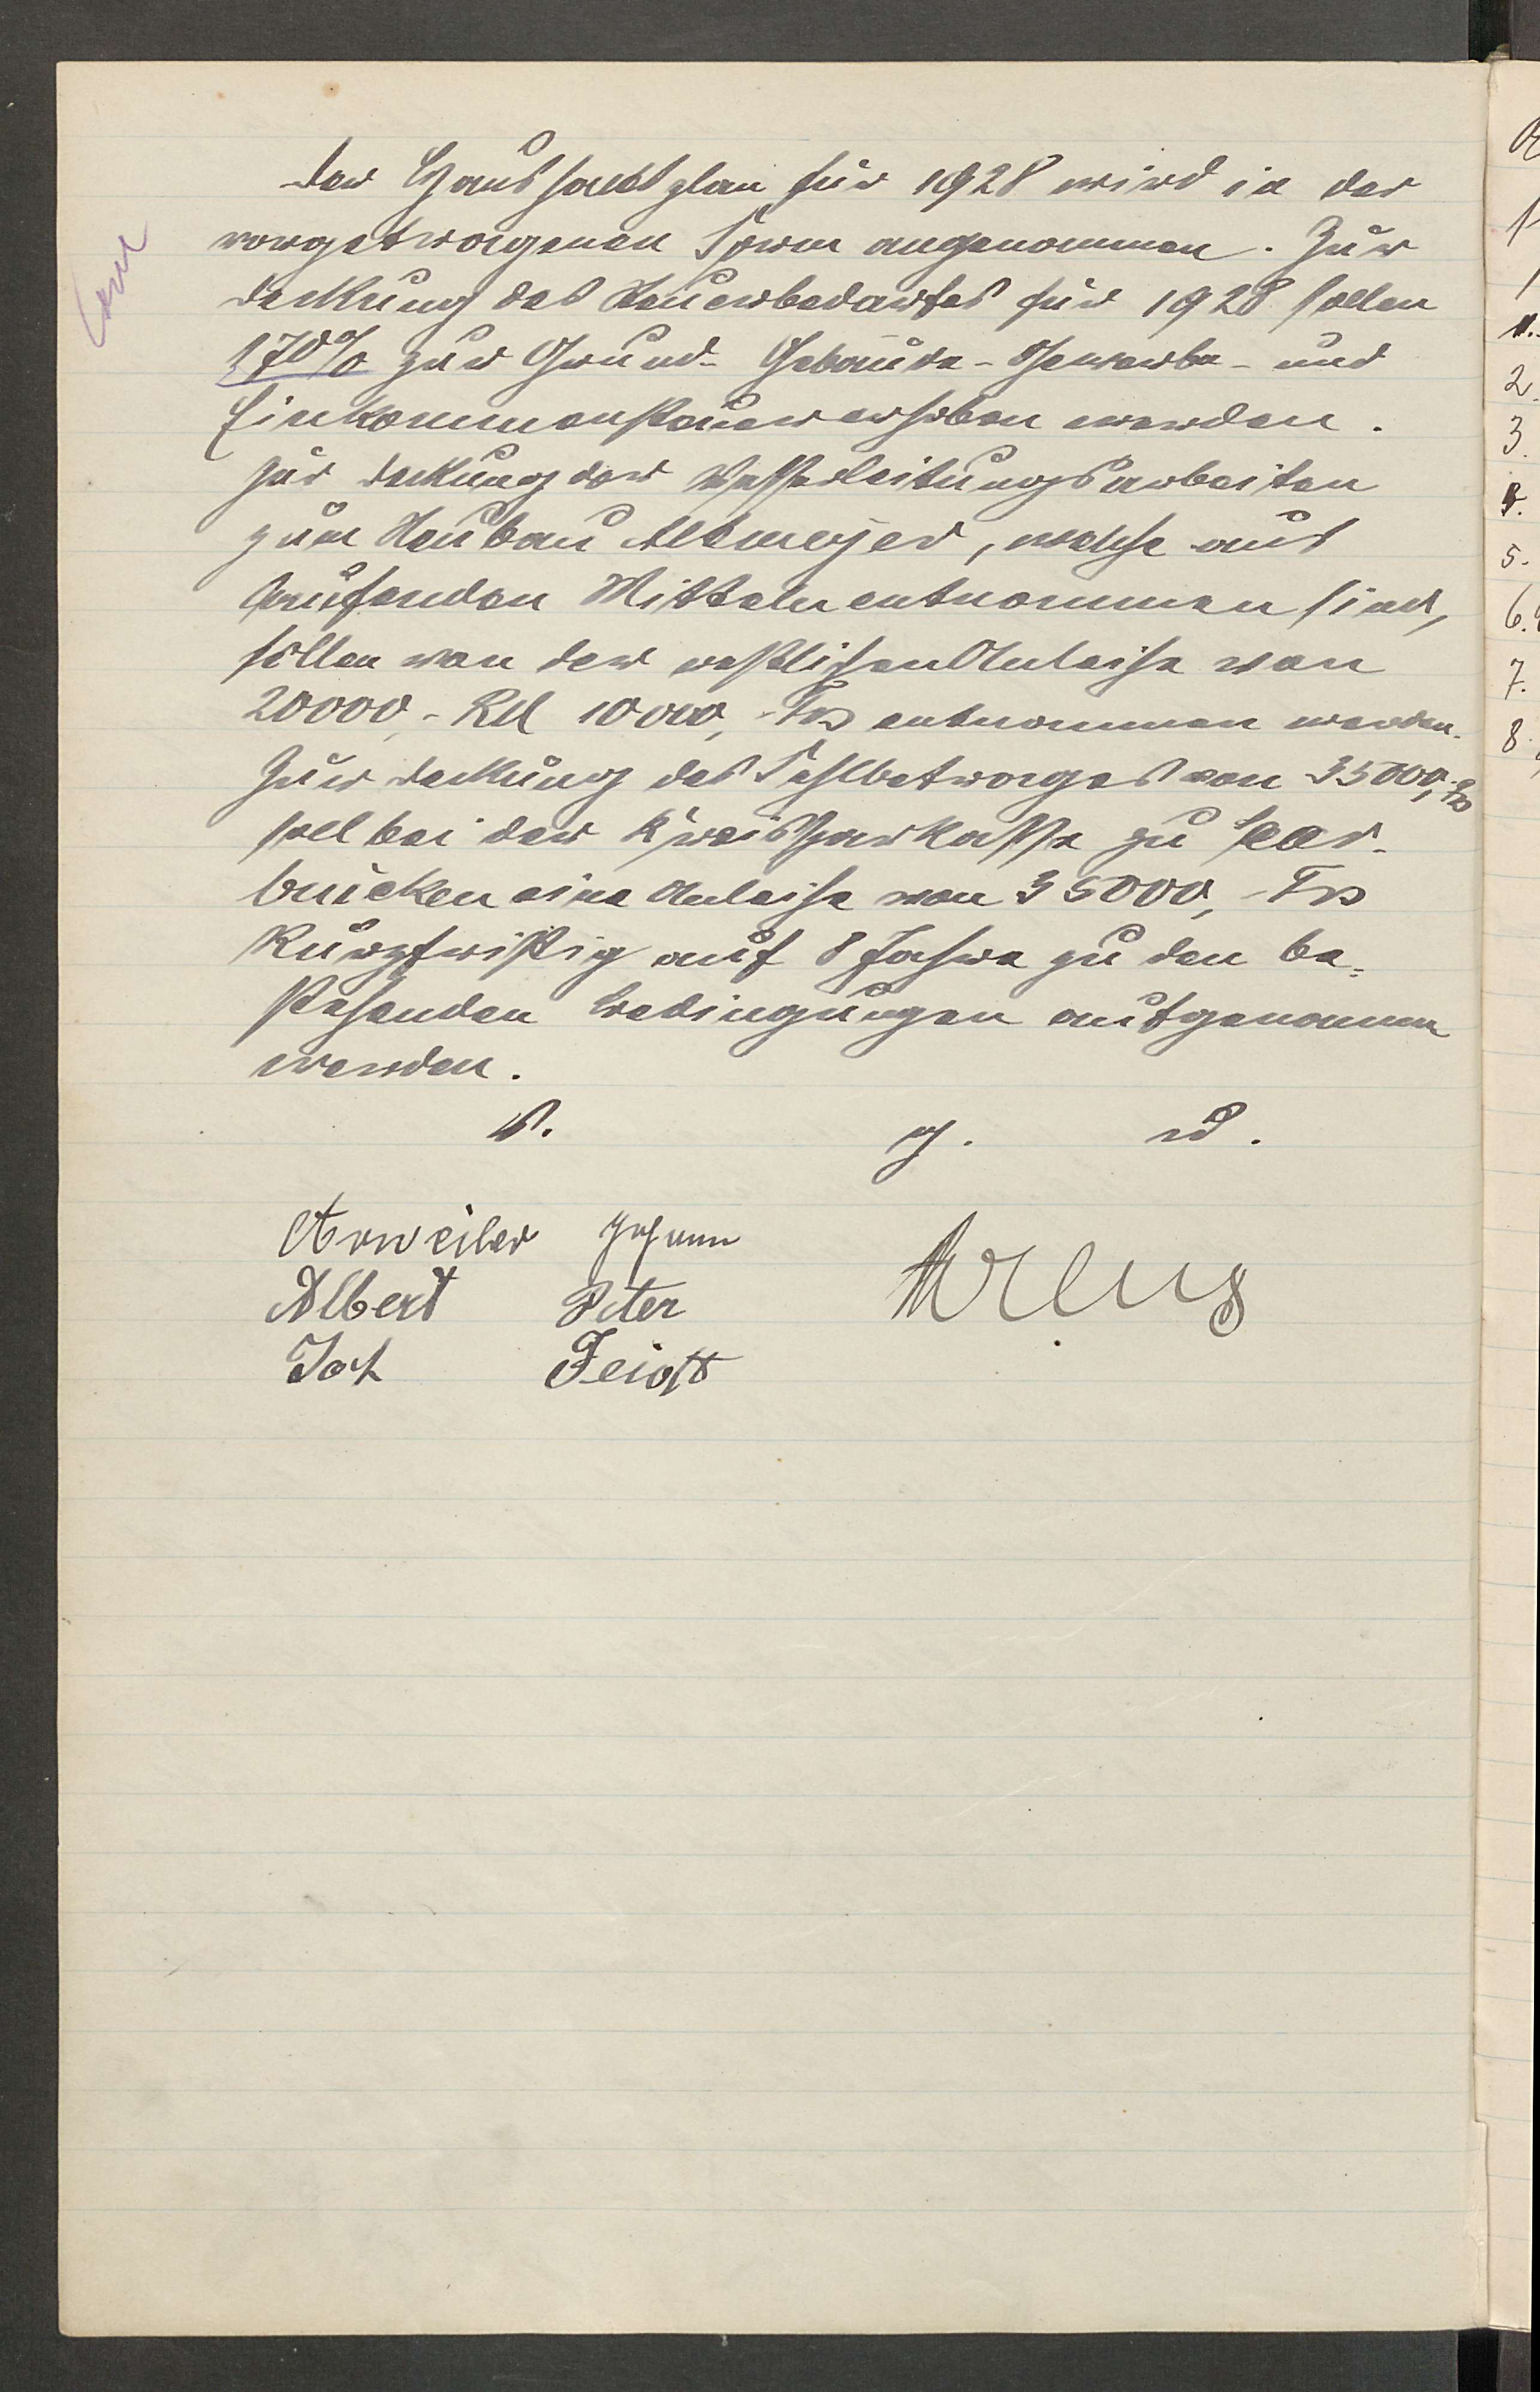 Der Haushaltsplan für 1928 wird in der
vorgetragenen Form angenommen. Zur
Deckung des Steuerbedarfes für 1928 sollen
170% zur Grund- Gebäude- Gewerbe- und
Einkommensteuer erhoben werden.
Zur Deckung der Wasserleitungsarbeiten
zum Neubau Altmeyer, welche aus
laufenden Mitteln entnommen sind,
sollen von der restlichen Anleihe von
20000,- RM 10000,- Frs entnommen werden.
Zur Deckung des Fehlbetrages von 35000,- Frs
soll bei der Kreissparkasse zu Saar-
brücken eine Anleihe von 35000,- Frs
kurzfristig auf 8 Jahre zu den be-
stehenden Bedingungen aufgenommen
werden.
v. g. u.
Arweiler Johann
Albert Peter
Joh Feidt
1.
2.
3.
4.
5.
6.
7.
8.